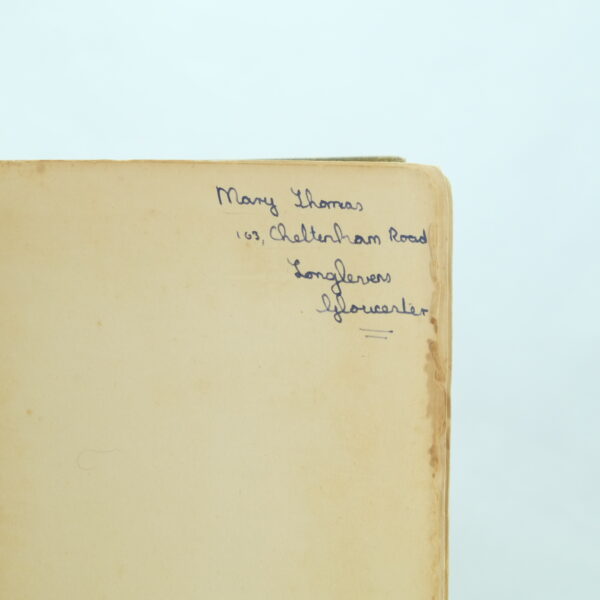 Mary Thomas
103, Cheltenham Road
Longlevens
Gloucester